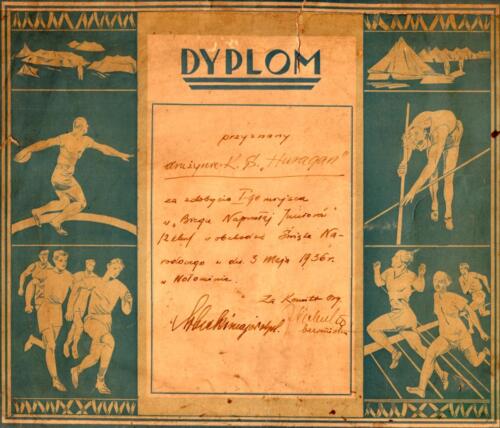 DYPLOM
przyznany
drużynie K. S. „Huragan"
za zdobycie I-go miejsca
w „Biegu Naprzełaj Juniorów"
w obchodzie Święta Na-
rodowego w dn. 3 Maja 1936 r.
w Wołominie.
Za Komitet Org.